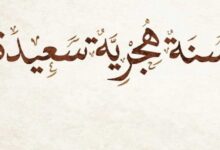 سَنَة هِجْرِيَّة سَعِيدَة